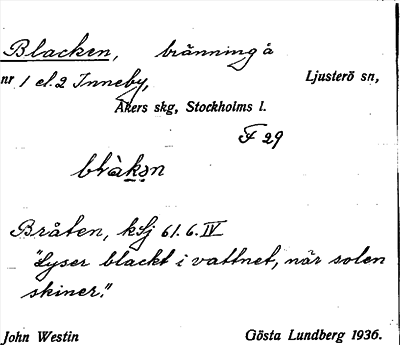 Blacken, bränning å
nr 1 el. 2 Inneby, Ljusterö sn,
Åkers skg, Stockholms l.
F 29
blàkən
Bråten, kbj 61.6.IV
"Lyser blackt i vattnet, när solen
skiner."
John Westin Gösta Lundberg 1936.